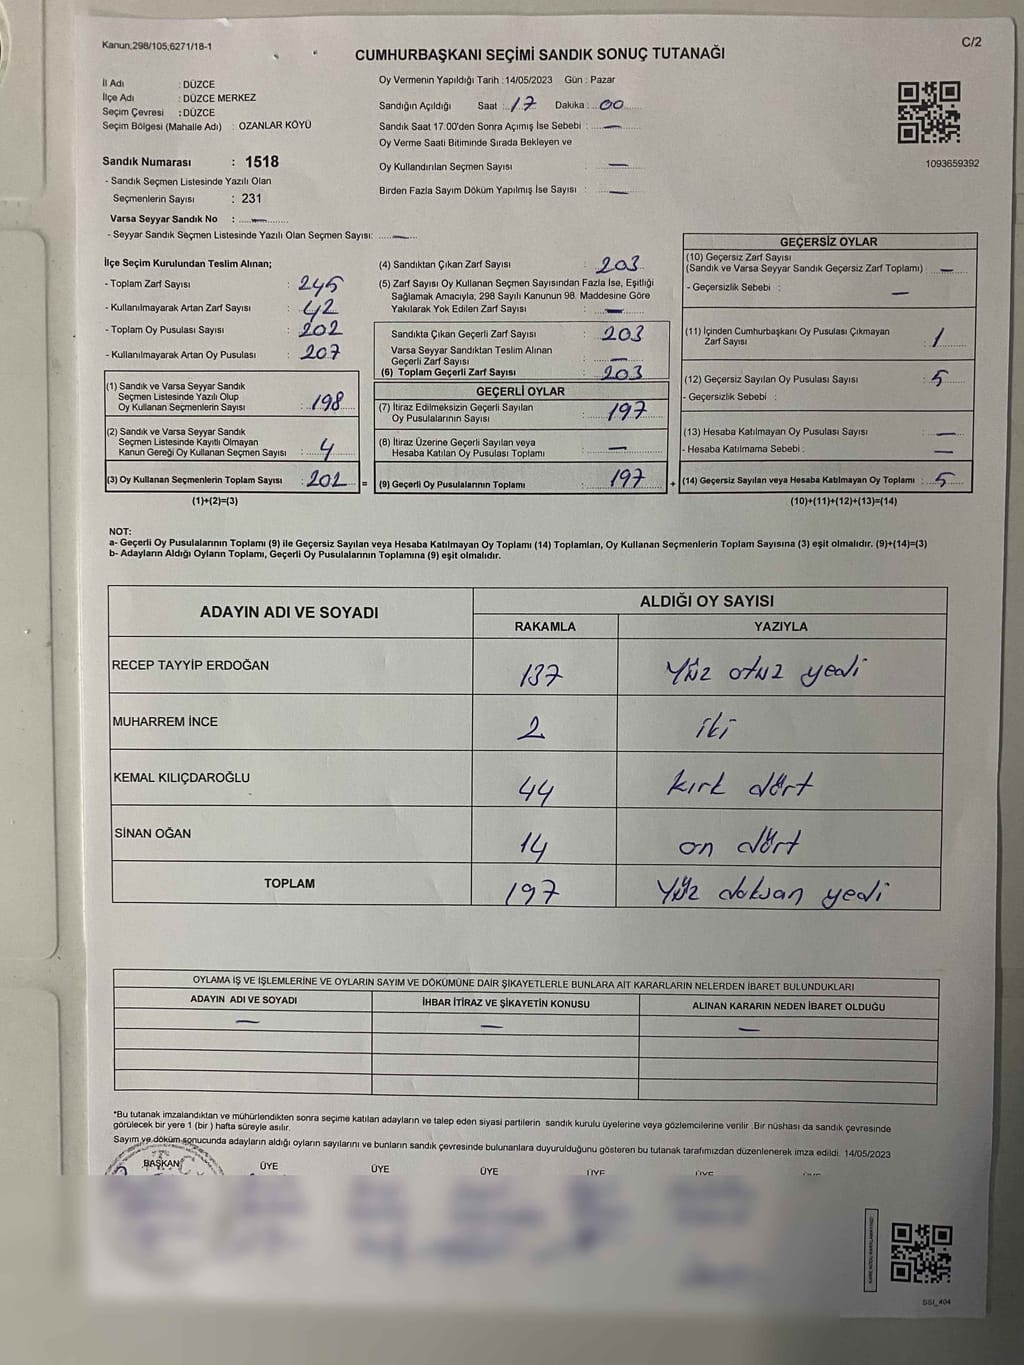 Kanun;298/105;6271/18-1
C/2
CUMHURBAŞKANI SEÇİMİ SANDIK SONUÇ TUTANAĞI
İl Adı : DÜZCE
İlçe Adı : DÜZCE MERKEZ
Seçim Çevresi : DÜZCE
Seçim Bölgesi (Mahalle Adı) : OZANLAR KÖYÜ
Sandık Numarası : 1518
- Sandık Seçmen Listesinde Yazılı Olan
Seçmenlerin Sayısı : 231
Varsa Seyyar Sandık No : —
- Seyyar Sandık Seçmen Listesinde Yazılı Olan Seçmen Sayısı: —
Oy Vermenin Yapıldığı Tarih : 14/05/2023 Gün : Pazar
Sandığın Açıldığı Saat : 17 Dakika : 00
Sandık Saat 17:00'den Sonra Açımış İse Sebebi : —
Oy Verme Saati Bitiminde Sırada Bekleyen ve
Oy Kullandırılan Seçmen Sayısı : —
Birden Fazla Sayım Döküm Yapılmış İse Sayısı : —
1093659392
İlçe Seçim Kurulundan Teslim Alınan;
- Toplam Zarf Sayısı : 245
- Kullanılmayarak Artan Zarf Sayısı : 42
- Toplam Oy Pusulası Sayısı : 202
- Kullanılmayarak Artan Oy Pusulası : 207
(1) Sandık ve Varsa Seyyar Sandık
Seçmen Listesinde Yazılı Olup
Oy Kullanan Seçmenlerin Sayısı : 198
(2) Sandık ve Varsa Seyyar Sandık
Seçmen Listesinde Kayıtlı Olmayan
Kanun Gereği Oy Kullanan Seçmen Sayısı : 4
(3) Oy Kullanan Seçmenlerin Toplam Sayısı : 202 =
(1)+(2)=(3)
(4) Sandıktan Çıkan Zarf Sayısı : 203
(5) Zarf Sayısı Oy Kullanan Seçmen Sayısından Fazla İse, Eşitliği
Sağlamak Amacıyla, 298 Sayılı Kanunun 98. Maddesine Göre
Yakılarak Yok Edilen Zarf Sayısı : —
Sandıkta Çıkan Geçerli Zarf Sayısı : 203
Varsa Seyyar Sandıktan Teslim Alınan
Geçerli Zarf Sayısı : —
(6) Toplam Geçerli Zarf Sayısı : 203
GEÇERLİ OYLAR
(7) İtiraz Edilmeksizin Geçerli Sayılan
Oy Pusulalarının Sayısı : 197
(8) İtiraz Üzerine Geçerli Sayılan veya
Hesaba Katılan Oy Pusulası Toplamı : —
(9) Geçerli Oy Pusulalarının Toplamı : 197 +
GEÇERSİZ OYLAR
(10) Geçersiz Zarf Sayısı
(Sandık ve Varsa Seyyar Sandık Geçersiz Zarf Toplamı) : —
- Geçersizlik Sebebi : —
(11) İçinden Cumhurbaşkanı Oy Pusulası Çıkmayan
Zarf Sayısı : 1
(12) Geçersiz Sayılan Oy Pusulası Sayısı : 5
- Geçersizlik Sebebi :
(13) Hesaba Katılmayan Oy Pusulası Sayısı : —
- Hesaba Katılmama Sebebi : —
(14) Geçersiz Sayılan veya Hesaba Katılmayan Oy Toplamı : 5
(10)+(11)+(12)+(13)=(14)
NOT:
a- Geçerli Oy Pusulalarının Toplamı (9) ile Geçersiz Sayılan veya Hesaba Katılmayan Oy Toplamı (14) Toplamları, Oy Kullanan Seçmenlerin Toplam Sayısına (3) eşit olmalıdır. (9)+(14)=(3)
b- Adayların Aldığı Oyların Toplamı, Geçerli Oy Pusulalarının Toplamına (9) eşit olmalıdır.
ADAYIN ADI VE SOYADI
ALDIĞI OY SAYISI
RAKAMLA YAZIYLA
RECEP TAYYİP ERDOĞAN 137 Yüz otuz yedi
MUHARREM İNCE 2 iki
KEMAL KILIÇDAROĞLU 44 kırk dört
SİNAN OĞAN 14 on dört
TOPLAM 197 Yüz doksan yedi
OYLAMA İŞ VE İŞLEMLERİNE VE OYLARIN SAYIM VE DÖKÜMÜNE DAİR ŞİKAYETLERLE BUNLARA AİT KARARLARIN NELERDEN İBARET BULUNDUKLARI
ADAYIN ADI VE SOYADI İHBAR İTİRAZ VE ŞİKAYETİN KONUSU ALINAN KARARIN NEDEN İBARET OLDUĞU
— — —
*Bu tutanak imzalandıktan ve mühürlendikten sonra seçime katılan adayların ve talep eden siyasi partilerin sandık kurulu üyelerine veya gözlemcilerine verilir .Bir nüshası da sandık çevresinde
görülecek bir yere 1 (bir ) hafta süreyle asılır.
Sayım ve döküm sonucunda adayların aldığı oyların sayılarını ve bunların sandık çevresinde bulunanlara duyurulduğunu gösteren bu tutanak tarafımızdan düzenlenerek imza edildi. 14/05/2023
BAŞKAN ÜYE ÜYE ÜYE ÜYE ÜYE
SSI_404